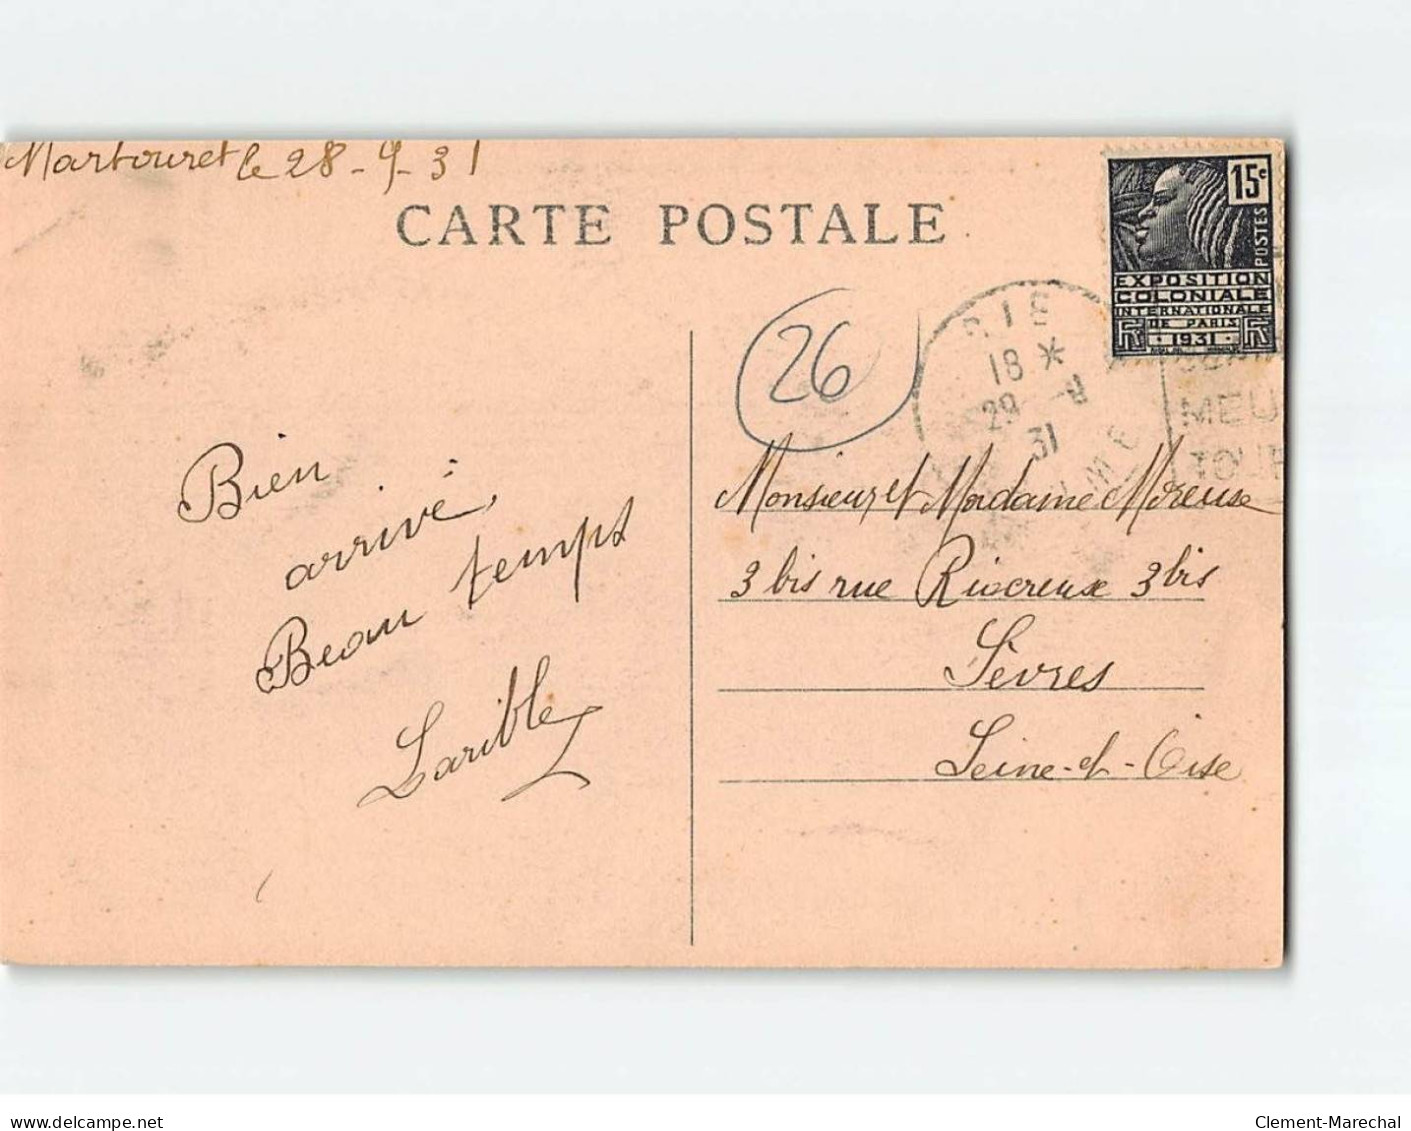 Martouret le 28-9-31
CARTE POSTALE
15c
POSTES
EXPOSITION
COLONIALE
INTERNATIONALE
DE PARIS
RF 1931 RF
26
DIE
18 *
29 -9
31
MEU
TOUR
Bien
arrivé,
Beau temps
Larible
Monsieur et Madame Moreuse
3 bis rue Riocreux 3 bis
Sèvres
Seine-et-Oise
www.delcampe.net
Clement-Marechal